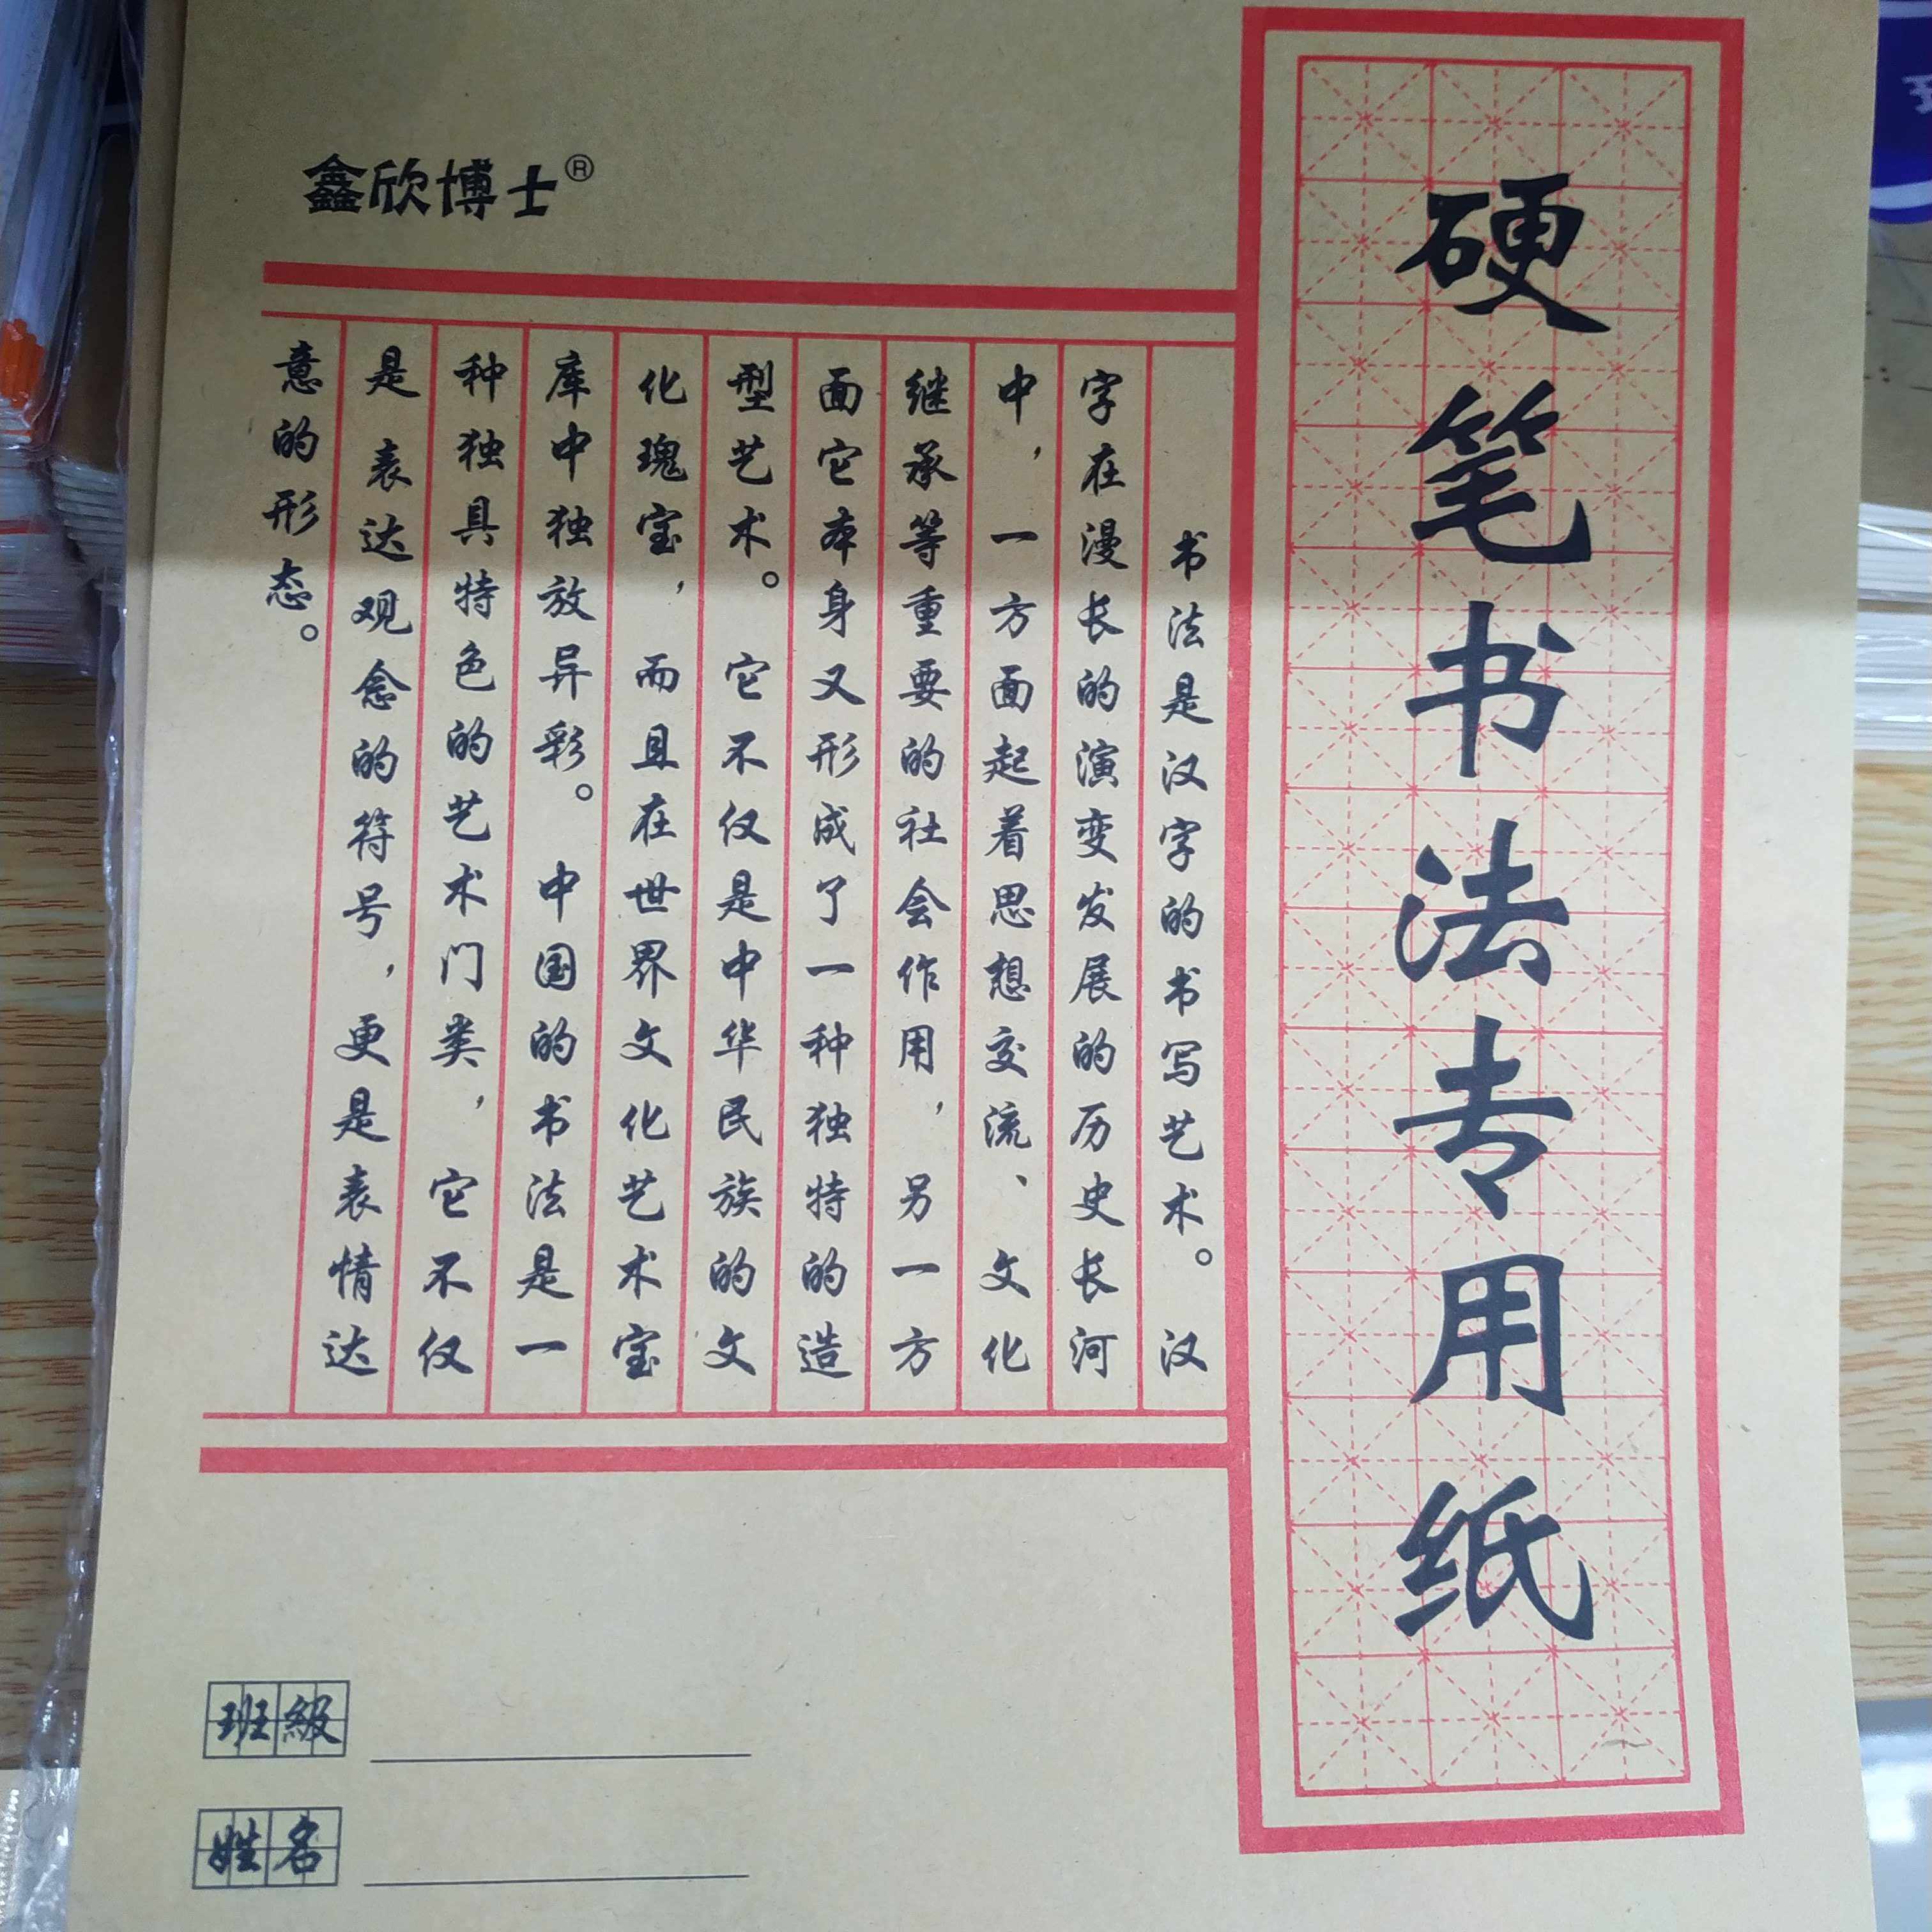 鑫欣博士®
硬笔书法专用纸
书法是汉字的书写艺术。汉
字在漫长的演变发展的历史长河
中，一方面起着思想交流、文化
继承等重要的社会作用，另一方
面它本身又形成了一种独特的造
型艺术。它不仅是中华民族的文
化瑰宝，而且在世界文化艺术宝
库中独放异彩。中国的书法是一
种独具特色的艺术门类，它不仅
是表达观念的符号，更是表情达
意的形态。
班級
姓名